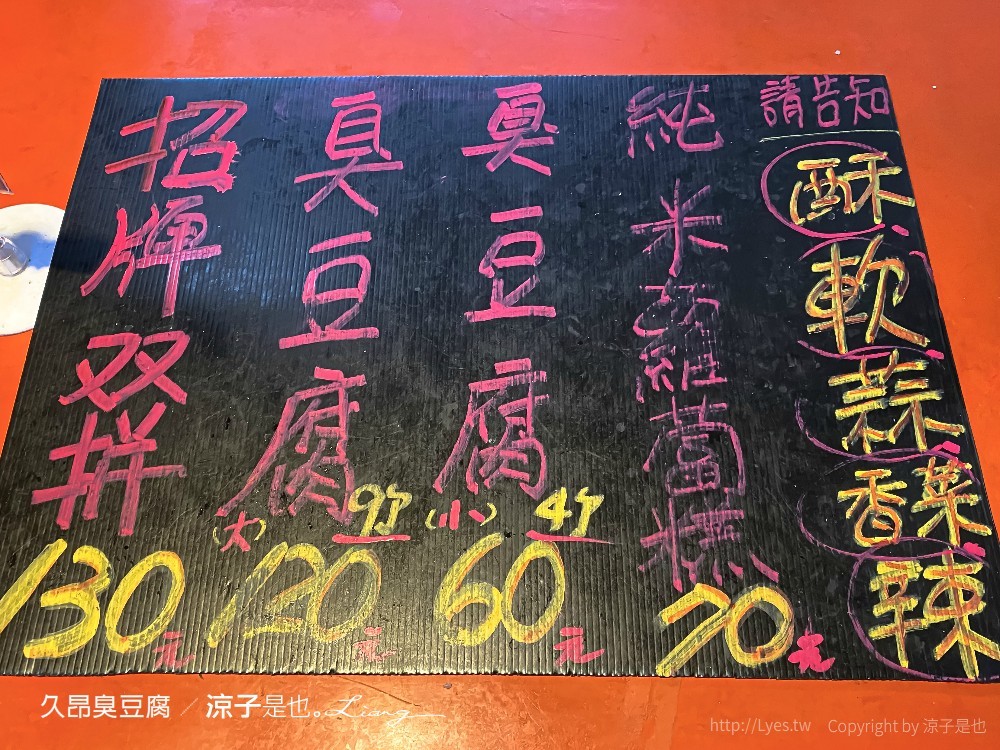 招牌双拼
130元
臭豆腐
(大) 9ケ
120元
臭豆腐
(小) 4ケ
60元
純米蘿蔔糕
70元
請告知
酥
軟
蒜
香菜
辣
久昂臭豆腐 / 涼子是也。Liang
http://Lyes.tw Copyright by 涼子是也